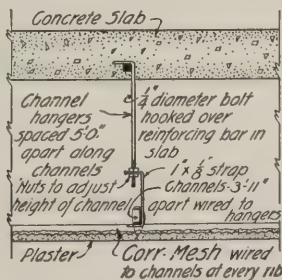 Concrete Slab
Channel
hangers
spaced 5'0"
apart along
channels
Nuts to adjust
height of channel
1/4" diameter bolt
hooked over
reinforcing bar in
slab
1" x 1/8" strap
Channels-3'-11"
apart wired to
hangers
Plaster
Corr. Mesh wired
to channels at every rib